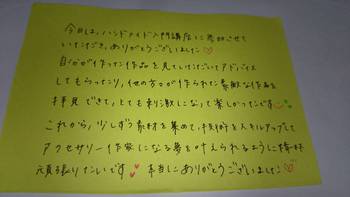 今日は、ハンドメイド入門講座に参加させて
いただき、ありがとうございました♡
自分が作った作品を見ていただいてアドバイス
してもらったり、他の方々が作られた素敵な作品を
拝見できて、とても刺激になって楽しかったです
これから、少しずつ素材を集めて、技術をスキルアップして
アクセサリー作家になる夢を叶えられるように
頑張りたいです 本当にありがとうございました♡